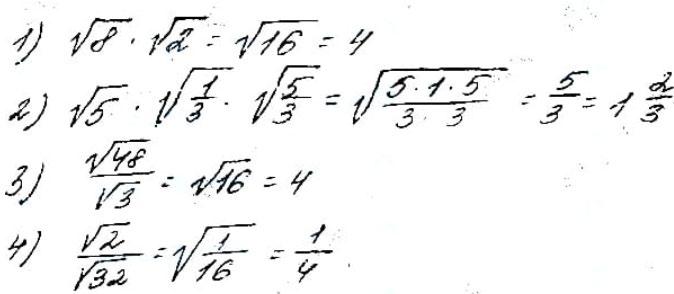 1) √8 · √2 = √16 = 4
2) √5 · √(1/3) · √(5/3) = √((5·1·5)/(3·3)) = 5/3 = 1 2/3
3) √48/√3 = √16 = 4
4) √2/√32 = √(1/16) = 1/4